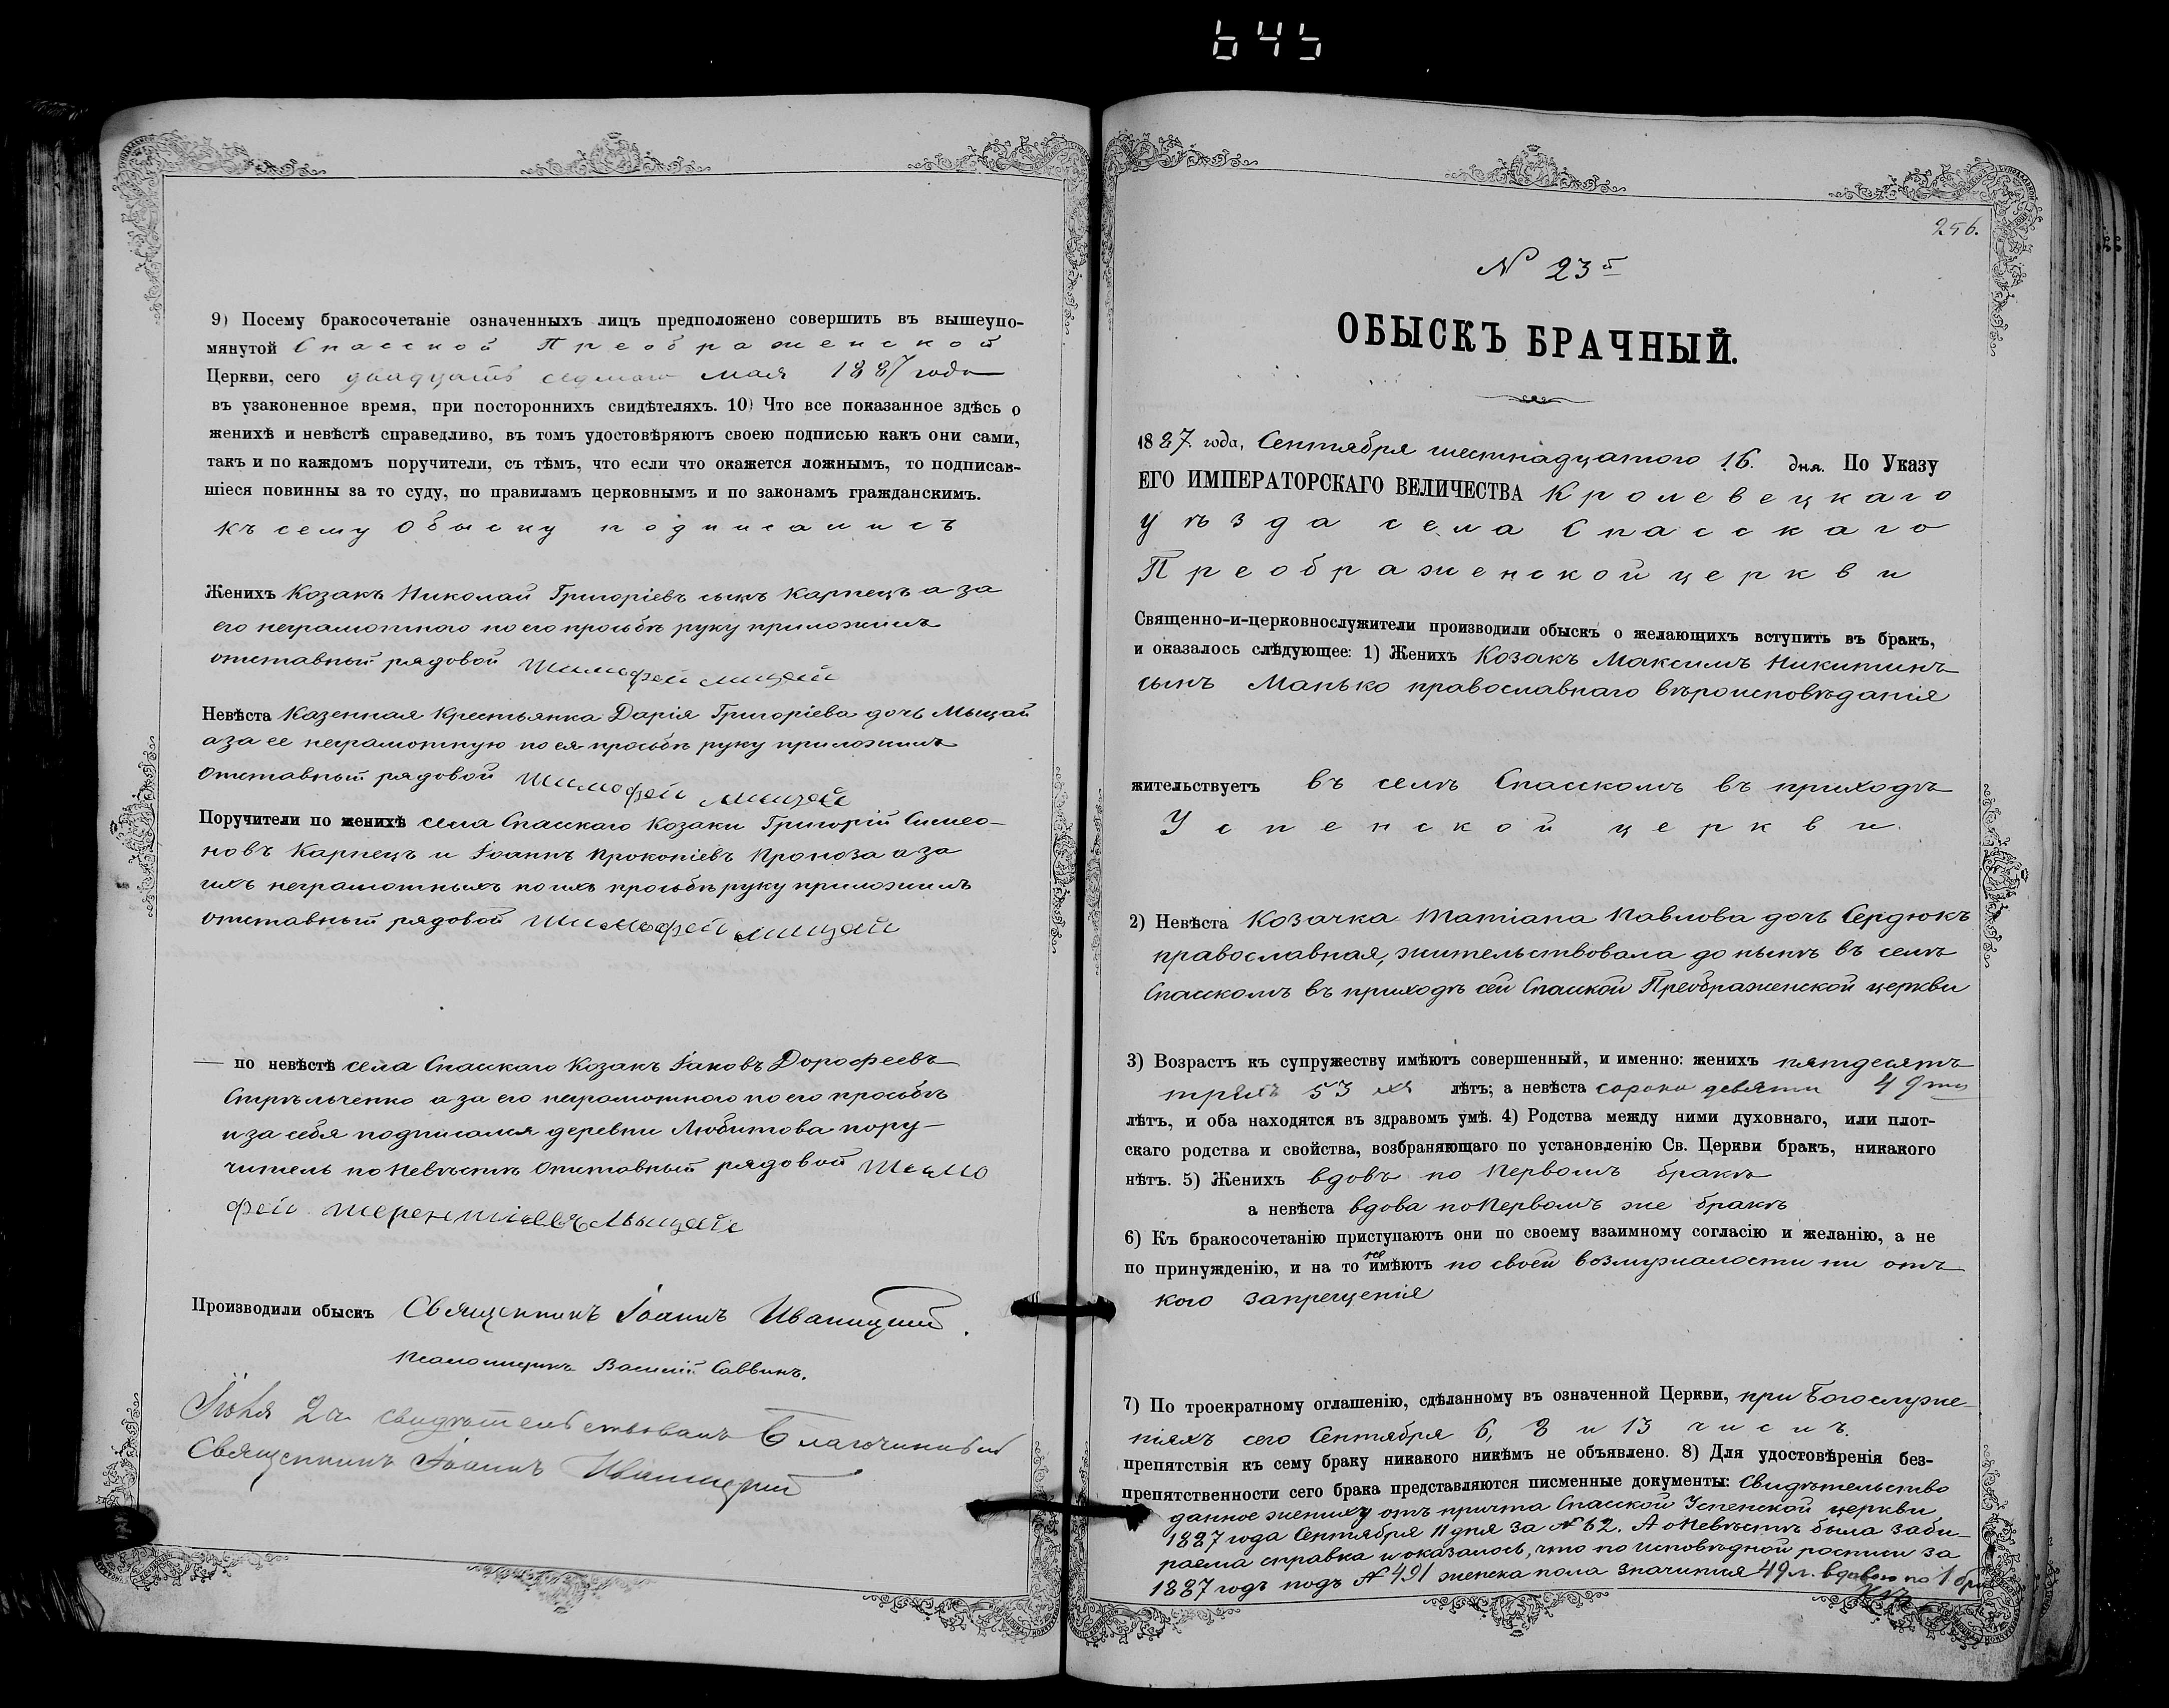 645
9) Посему бракосочетаніе означенныхъ лицъ предположено совершить въ вышеупо-
мянутой Спасской Преображенской
Церкви, сего двадцать седмаго мая 1887 года
въ узаконенное время, при постороннихъ свидѣтеляхъ. 10) Что все показанное здѣсь о
женихѣ и невѣстѣ справедливо, въ томъ удостовѣряютъ своею подписью какъ они сами,
такъ и по каждомъ поручители, съ тѣмъ, что если что окажется ложнымъ, то подписав-
шіеся повинны за то суду, по правиламъ церковнымъ и по законамъ гражданскимъ.
Къ сему Обыску подписались
Женихъ Козакъ Николай Григоріевъ сынъ Карпецъ а за
его неграмотного по его просьбѣ руку приложилъ
отставный рядовой Тимофей Мицай
Невѣста Казенная Крестьянка Дарія Григоріева дочь Мыцай
а за ее неграмотную по ея просьбѣ руку приложилъ
Отставный рядовой Тимофей Мицай
Поручители по женихѣ села Спасскаго Козаки Григорій Симео-
новъ Карпецъ и Іоаннъ Прокопіевъ Проноза а за
ихъ неграмотныхъ по ихъ просьбѣ руку приложилъ
отставный рядовой Тимофей Мицай
— по невѣстѣ села Спасскаго Козакъ Іаковъ Дорофеевъ
Стрѣльченко а за его неграмотного по его просьбѣ
и за себя подписался деревни Любитова пору-
читель по Невѣстѣ Отставный рядовой Тимо
фей Терентіевъ Мыцай
Производили обыскъ Священникъ Іоаннъ Иваницкій.
Псаломщикъ Василій Саввинъ.
Іюня 2 свидѣтельствовалъ Благочинный
Священникъ Іоаннъ Иваницкій
256.
№ 23й
ОБЫСКЪ БРАЧНЫЙ.
1887 года, Сентября шестнадцатого 16. дня. По Указу
ЕГО ИМПЕРАТОРСКАГО ВЕЛИЧЕСТВА Кролевецкаго
уѣзда села Спасскаго
Преображенской церкви
Священно-и-церковнослужители производили обыскъ о желающихъ вступить въ бракъ,
и оказалось слѣдующее: 1) Женихъ Козакъ Максимъ Никитинъ
сынъ Манько православнаго вѣроисповѣданія
жительствуетъ въ селѣ Спасскомъ въ приходѣ
Успенской церкви.
2) Невѣста Козачка Татіана Павлова дочь Сердюкъ
православная, жительствовала до нынѣ въ селѣ
Спасскомъ въ приходѣ сей Спаской Преображенской церкви
3) Возрастъ къ супружеству имѣютъ совершенный, и именно: женихъ пятдесятъ
трехъ 53 хъ лѣтъ; а невѣста сорока девяти 49ти
лѣтъ, и оба находятся въ здравомъ умѣ. 4) Родства между ними духовнаго, или плот-
скаго родства и свойства, возбраняющаго по установленію Св. Церкви бракъ, никакого
нѣтъ. 5) Женихъ вдовъ по Первомъ бракѣ
а невѣста вдова по Первомъ же бракѣ
6) Къ бракосочетанію приступаютъ они по своему взаимному согласію и желанію, а не
по принужденію, и на то не имѣютъ по своей возмужалости ни отъ
кого запрещенія
7) По троекратному оглашенію, сдѣланному въ означенной Церкви, при Богослуже-
ніяхъ сего Сентября 6, 8 и 13 числъ.
препятствія къ сему браку никакого никѣмъ не объявлено. 8) Для удостовѣренія без-
препятственности сего брака представляются писменные документы: Свидѣтельство
данное жениху отъ причта Спаской Успенской церкви
1887 года Сентября 11 дня за № 62. А о Невѣстѣ была заби-
раема справка и оказалось, что по исповѣдной росписи за
1887 годъ подъ № 491 женска пола значится 49 л. вдовою по 1 бра
кѣ